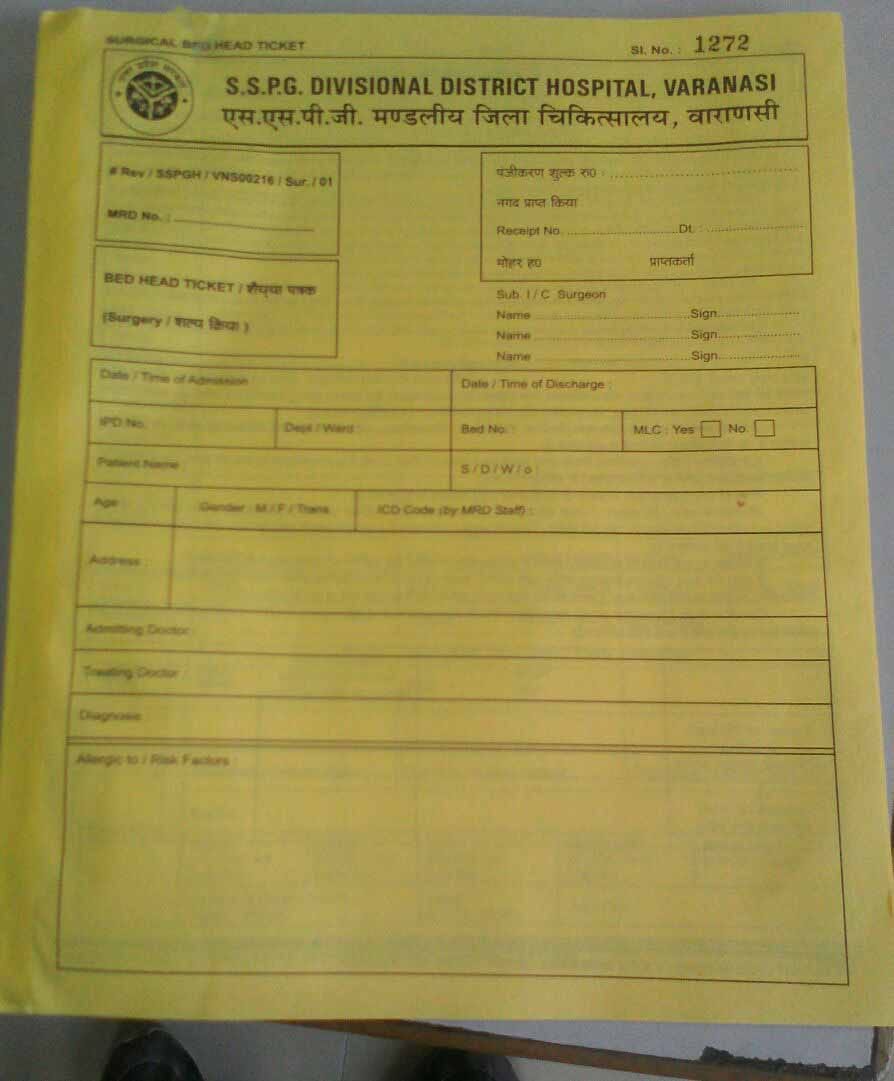 SURGICAL BED HEAD TICKET
Sl. No. : 1272
S.S.P.G. DIVISIONAL DISTRICT HOSPITAL, VARANASI
एस.एस.पी.जी. मण्डलीय जिला चिकित्सालय, वाराणसी
# Rev / SSPGH / VNS00216 / Sur. / 01
MRD No. :
पंजीकरण शुल्क रु0 :
नगद प्राप्त किया
Receipt No. Dt. :
मोहर ह0 प्राप्तकर्ता
BED HEAD TICKET / शैय्या पत्रक
(Surgery / शल्य क्रिया )
Sub. I / C Surgeon
Name Sign.
Name Sign.
Name Sign.
Date / Time of Admission
Date / Time of Discharge :
IPD No.
Dept / Ward :
Bed No. :
MLC : Yes No.
Patient Name
S / D / W / o :
Age
Gender : M / F / Trans
ICD Code (by MRD Staff) :
Address :
Admitting Doctor
Treating Doctor
Diagnosis
Allergic to / Risk Factors :